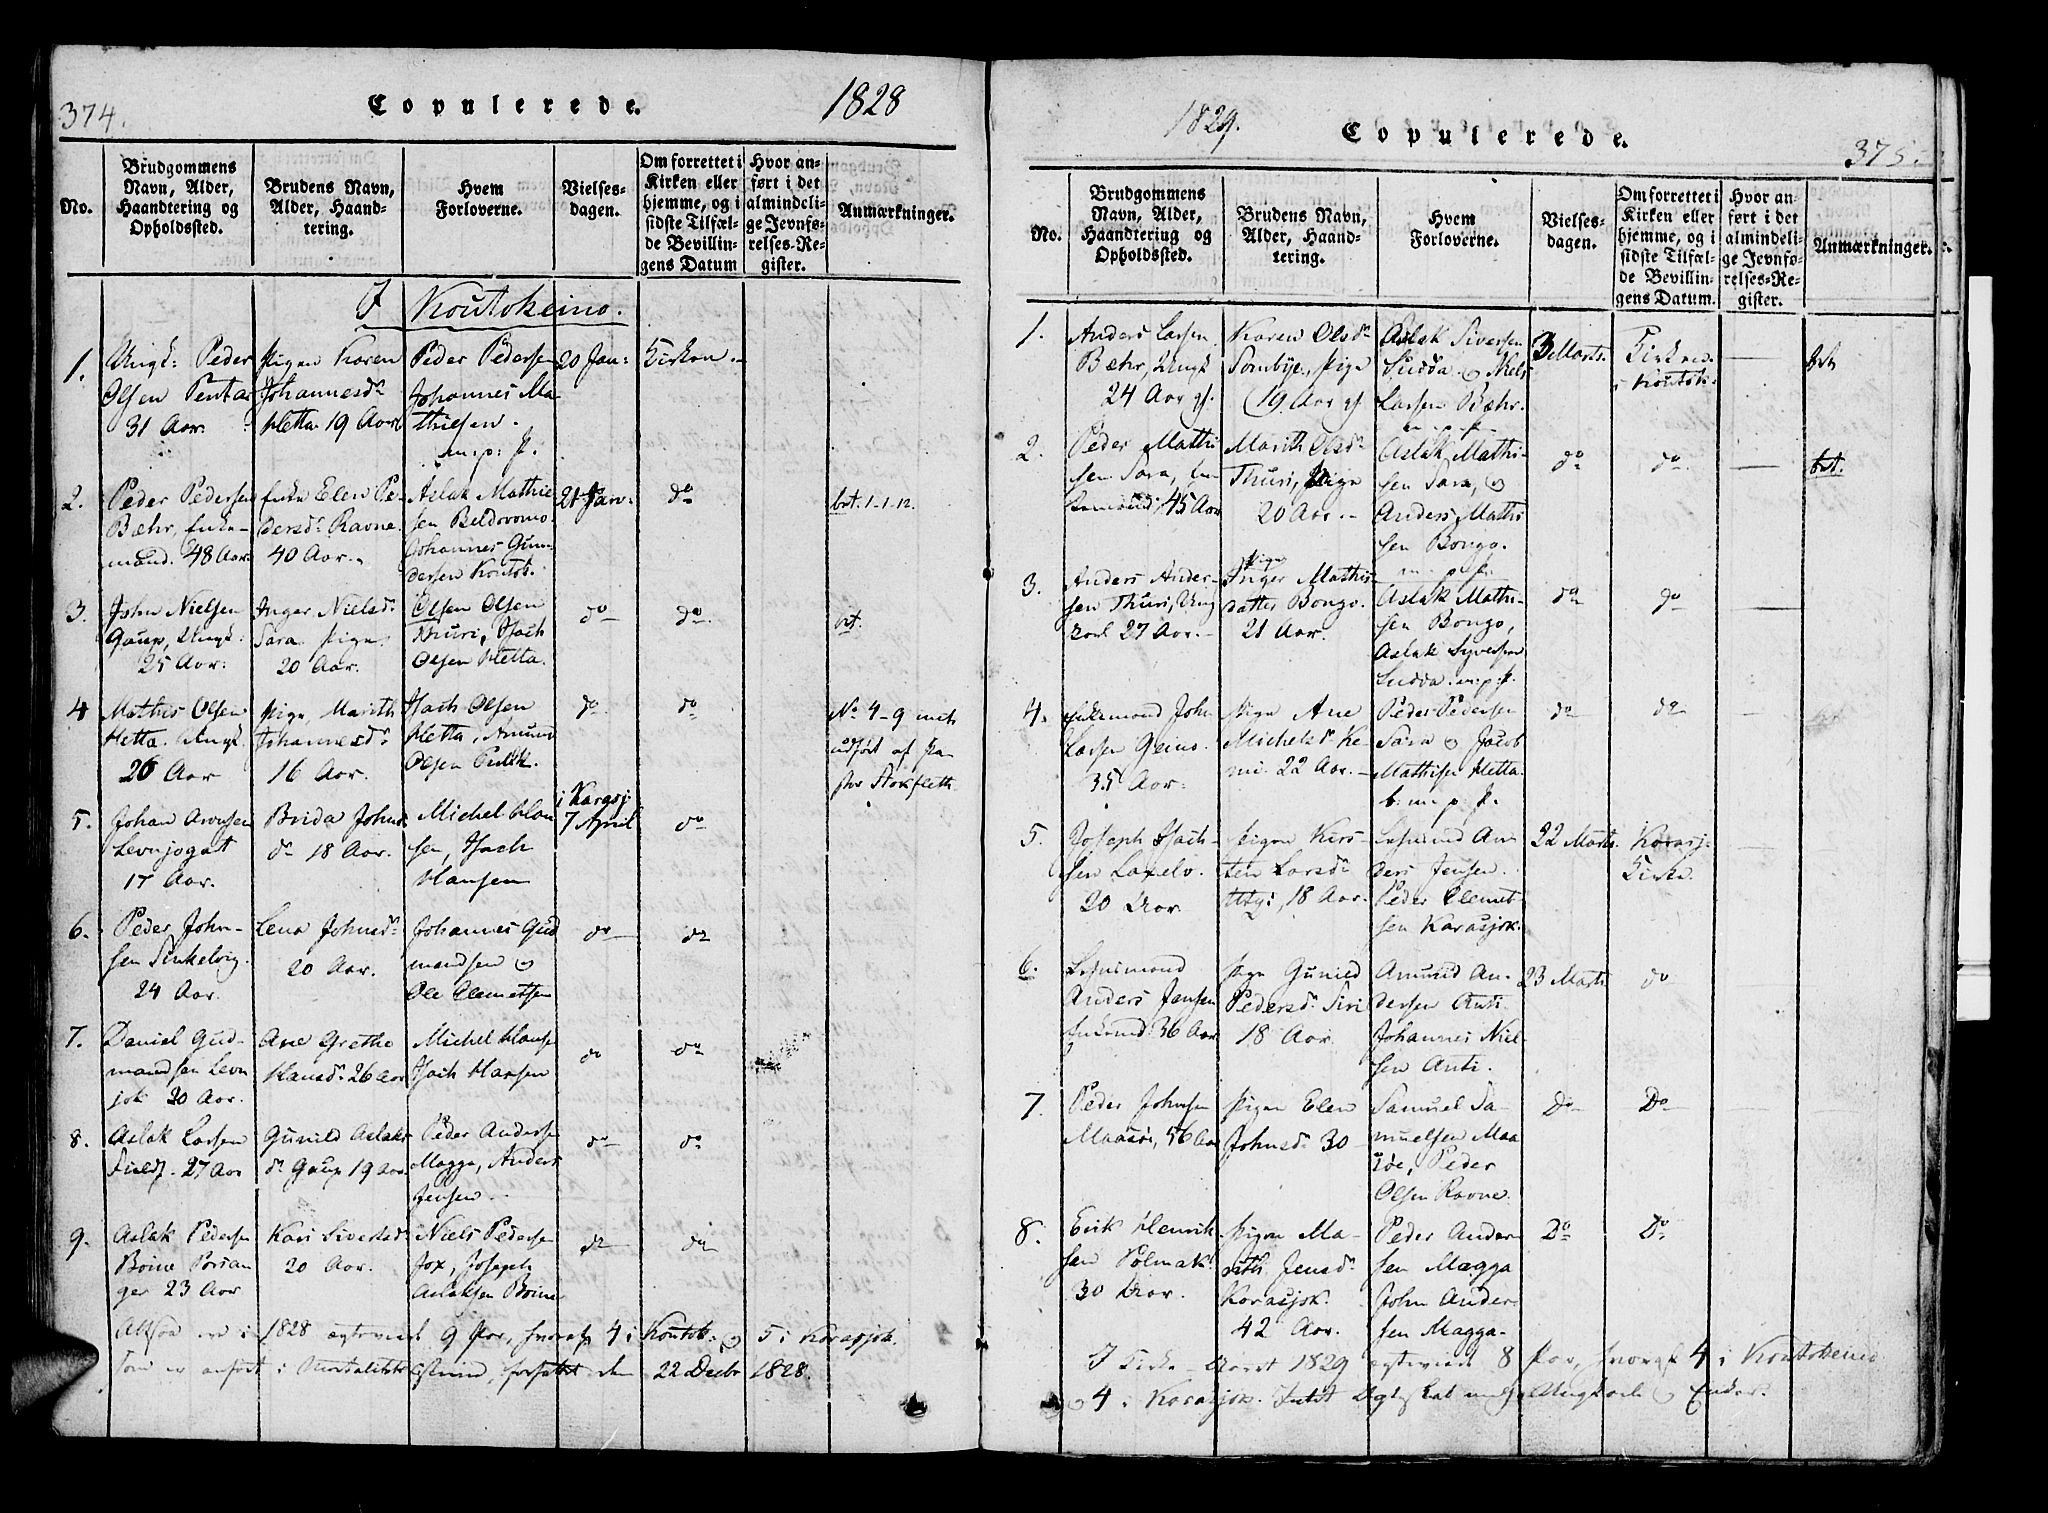 374.
Copulerede.
1828
No.
Brudgommens
Navn, Alder,
Haandtering og
Opholdssted.
Brudens Navn,
Alder, Haand-
tering.
Hvem
Forloverne.
Vielses-
dagen.
Om forrettet i
Kirken eller
hjemme, og i
sidste Tilfæl-
de Bevillin-
gens Datum
Hvor an-
ført i det
almindeli-
ge Jevnfø-
relses-Re-
gister.
Anmærkninger.
I Koutokeino.
1.
Ungk: Peder
Olsen Pentas
31 Aar.
Pigen Karen
Johannesdr
Hetta 19 Aar
Peder Pedersen
Johannes Ma-
thisen.
m: p: f:
20 Jan:
Kirken.
2.
Peder Pedersen
Bæhr, Enke-
mand. 48 Aar
Enke Elen Pe-
dersdr Ravne.
40 Aar.
Aslak Mathi-
sen
Johannes Gun-
dersen Koutok.
21 Jan:
do
3.
John Nielsen
Gaup, Ungk:
25 Aar:
Inger Nielsdr
Sara Pige
20 Aar.
Olsen Olsen
Thuri, Isach
Olsen Hetta.
do
do
4
Mathis Olsen
Hetta. Ungk.
26 Aar
Pige, Marith
Johannesdr
16 Aar.
Isach Olsen
Hetta, Amund
Olsen
do
do
No 4-9
udført af Pa-
stor Stokfleth
5.
Johan
17 Aar.
Brida Johns
dr 18 Aar.
Michel Han
sen, Isach
Hansen
i Karasj:
7 April
do
6.
Peder John-
sen
24 Aar.
Lena Johnsdr
20 Aar.
Johannes Gud
mandsen og
Ole Clemetsen
do
do
7.
Daniel Gud-
mandsen Levn
jok 20 Aar.
Ane Grethe
Hansdr 26 Aar
Michel Hanse
Isach Hansen
do
do
8.
Aslak Larsen
27 Aar
Gunild Aslaks
dr Gaup 19 Aar.
Peder Anderse
Magga, Anders
Jensen.
do
do
9.
Aslak Pedersen
Boine Porsan
ger 23 Aar
Kari Sivertsdr
20 Aar.
Niels Pedersen
Jox, Joseph
Aslaksen Boine
do
do
Altsaa ere i 1828 egteviet 9 Par, hvoraf 4 i Koutok: og 5 i Karasjok.
som er anført i den 22 Decbr 1828.
1829.
Copulerede.
375.
No.
Brudgommens
Navn, Alder,
Haandtering og
Opholdssted.
Brudens Navn,
Alder, Haand-
tering.
Hvem
Forloverne.
Vielses-
dagen.
Om forrettet i
Kirken eller
hjemme, og i
sidste Tilfæl-
de Bevillin-
gens Datum.
Hvor an-
ført i det
almindeli-
ge Jevnfø-
relses-Re-
gister.
Anmærkninger.
1.
Anders Larsen
Bæhr, Ungk
24 Aar gl.
Karen Olsdr
Sombye, Pige
19 Aar gl.
Aslak Siversen
Sudda og Niels
Larsen Bæhr.
m. p. f.
3 Marts.
Kirken
i Koutok:
2.
Peder Mathi
sen Sara, En-
kemand: 45 Aar
Marith Olsdr
Thuri, Pige
20 Aar.
Aslak Mathi-
sen Sara, og
Anders Mathi
sen Bongo.
m. p. f.
do
do
3.
Anders Ander-
sen Thuri, Ung
karl 27 Aar.
Pige
Inger Mathis
datter Bongo.
21 Aar.
Aslak Mathi-
sen Bongo,
Aslak Syversen
Sudda. m. p. f.
do
do
4.
Enkemand John
Larsen Geino.
35 Aar.
Pige Ane
Michelsdr Ke
mi. 22 Aar.
Peder Pedersen
Sara og Jacob
Mathisen Hetta
b: m. p. f.
do
do
5.
Joseph Isach-
sen
20 Aar.
Pigen Kirs-
ten Larsdr
Utzi, 18 Aar.
An
ders Jensen.
Peder Clemet
sen Karasjok.
22 Marts.
Karasj:
Kirke.
6.
Anders Jensen
Enkemd: 36 Aar
Pige Gunild
Pedersdr Siri
18 Aar.
Amund An-
dersen Anti
Johannes Niel-
sen Anti.
23 Marts
do
7.
Peder Johnsen
Maasøe, 56 Aar
Pigen Elen
Johnsdr 30
Samuel Sa-
muelsen Maa
søe, Peder
Olsen Ravne.
Do
Do
8.
Erik Henrik
sen Polmak
30 Aar.
Pigen Ma-
rith Jensdr
Karasjok.
42 Aar.
Peder Ander
sen Magga
John Ander-
sen Magga
Do
Do
I Kirke-Aaret 1829 egteviet 8 Par, hvoraf 4 i Koutokeino
og 4 i Karasjok.